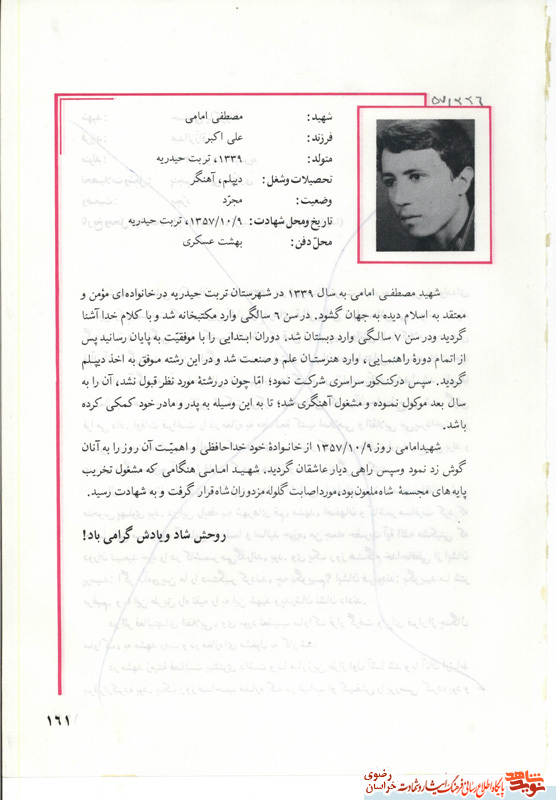 ۵۷/۲۲۶
شهید: مصطفی امامی
فرزند: علی اکبر
متولد: ۱۳۳۹، تربت حیدریه
تحصیلات وشغل: دیپلم، آهنگر
وضعیت: مجرّد
تاریخ ومحل شهادت: ۱۳۵۷/۱۰/۹، تربت حیدریه
محلّ دفن: بهشت عسکری
شهید مصطفی امامی به سال ۱۳۳۹ در شهرستان تربت حیدریه در خانواده‌ای مؤمن و
معتقد به اسلام دیده به جهان گشود. در سن ۶ سالگی وارد مکتبخانه شد و با کلام خدا آشنا
گردید ودر سن ۷ سالگی وارد دبستان شد. دوران ابتدایی را با موفقیّت به پایان رسانید پس
از اتمام دورهٔ راهنمایی، وارد هنرستان علم و صنعت شد و در این رشته موفق به اخذ دیپلم
گردید. سپس درکنکور سراسری شرکت نمود؛ امّا چون در رشتهٔ مورد نظر قبول نشد، آن را به
سال بعد موکول نموده و مشغول آهنگری شد؛ تا به این وسیله به پدر و مادر خود کمکی کرده
باشد.
شهیدامامی روز ۱۳۵۷/۱۰/۹ از خانوادهٔ خود خداحافظی و اهمیّت آن روز را به آنان
گوش زد نمود وسپس راهی دیار عاشقان گردید. شهید امامی هنگامی که مشغول تخریب
پایه های مجسمهٔ شاه ملعون بود، مورد اصابت گلوله مزدوران شاه قرار گرفت و به شهادت رسید.
روحش شاد و یادش گرامی باد!
۱۶۱
نوید شاهد پایگاه اطلاع رسانی فرهنگ ایثار و شهادت خراسان رضوی